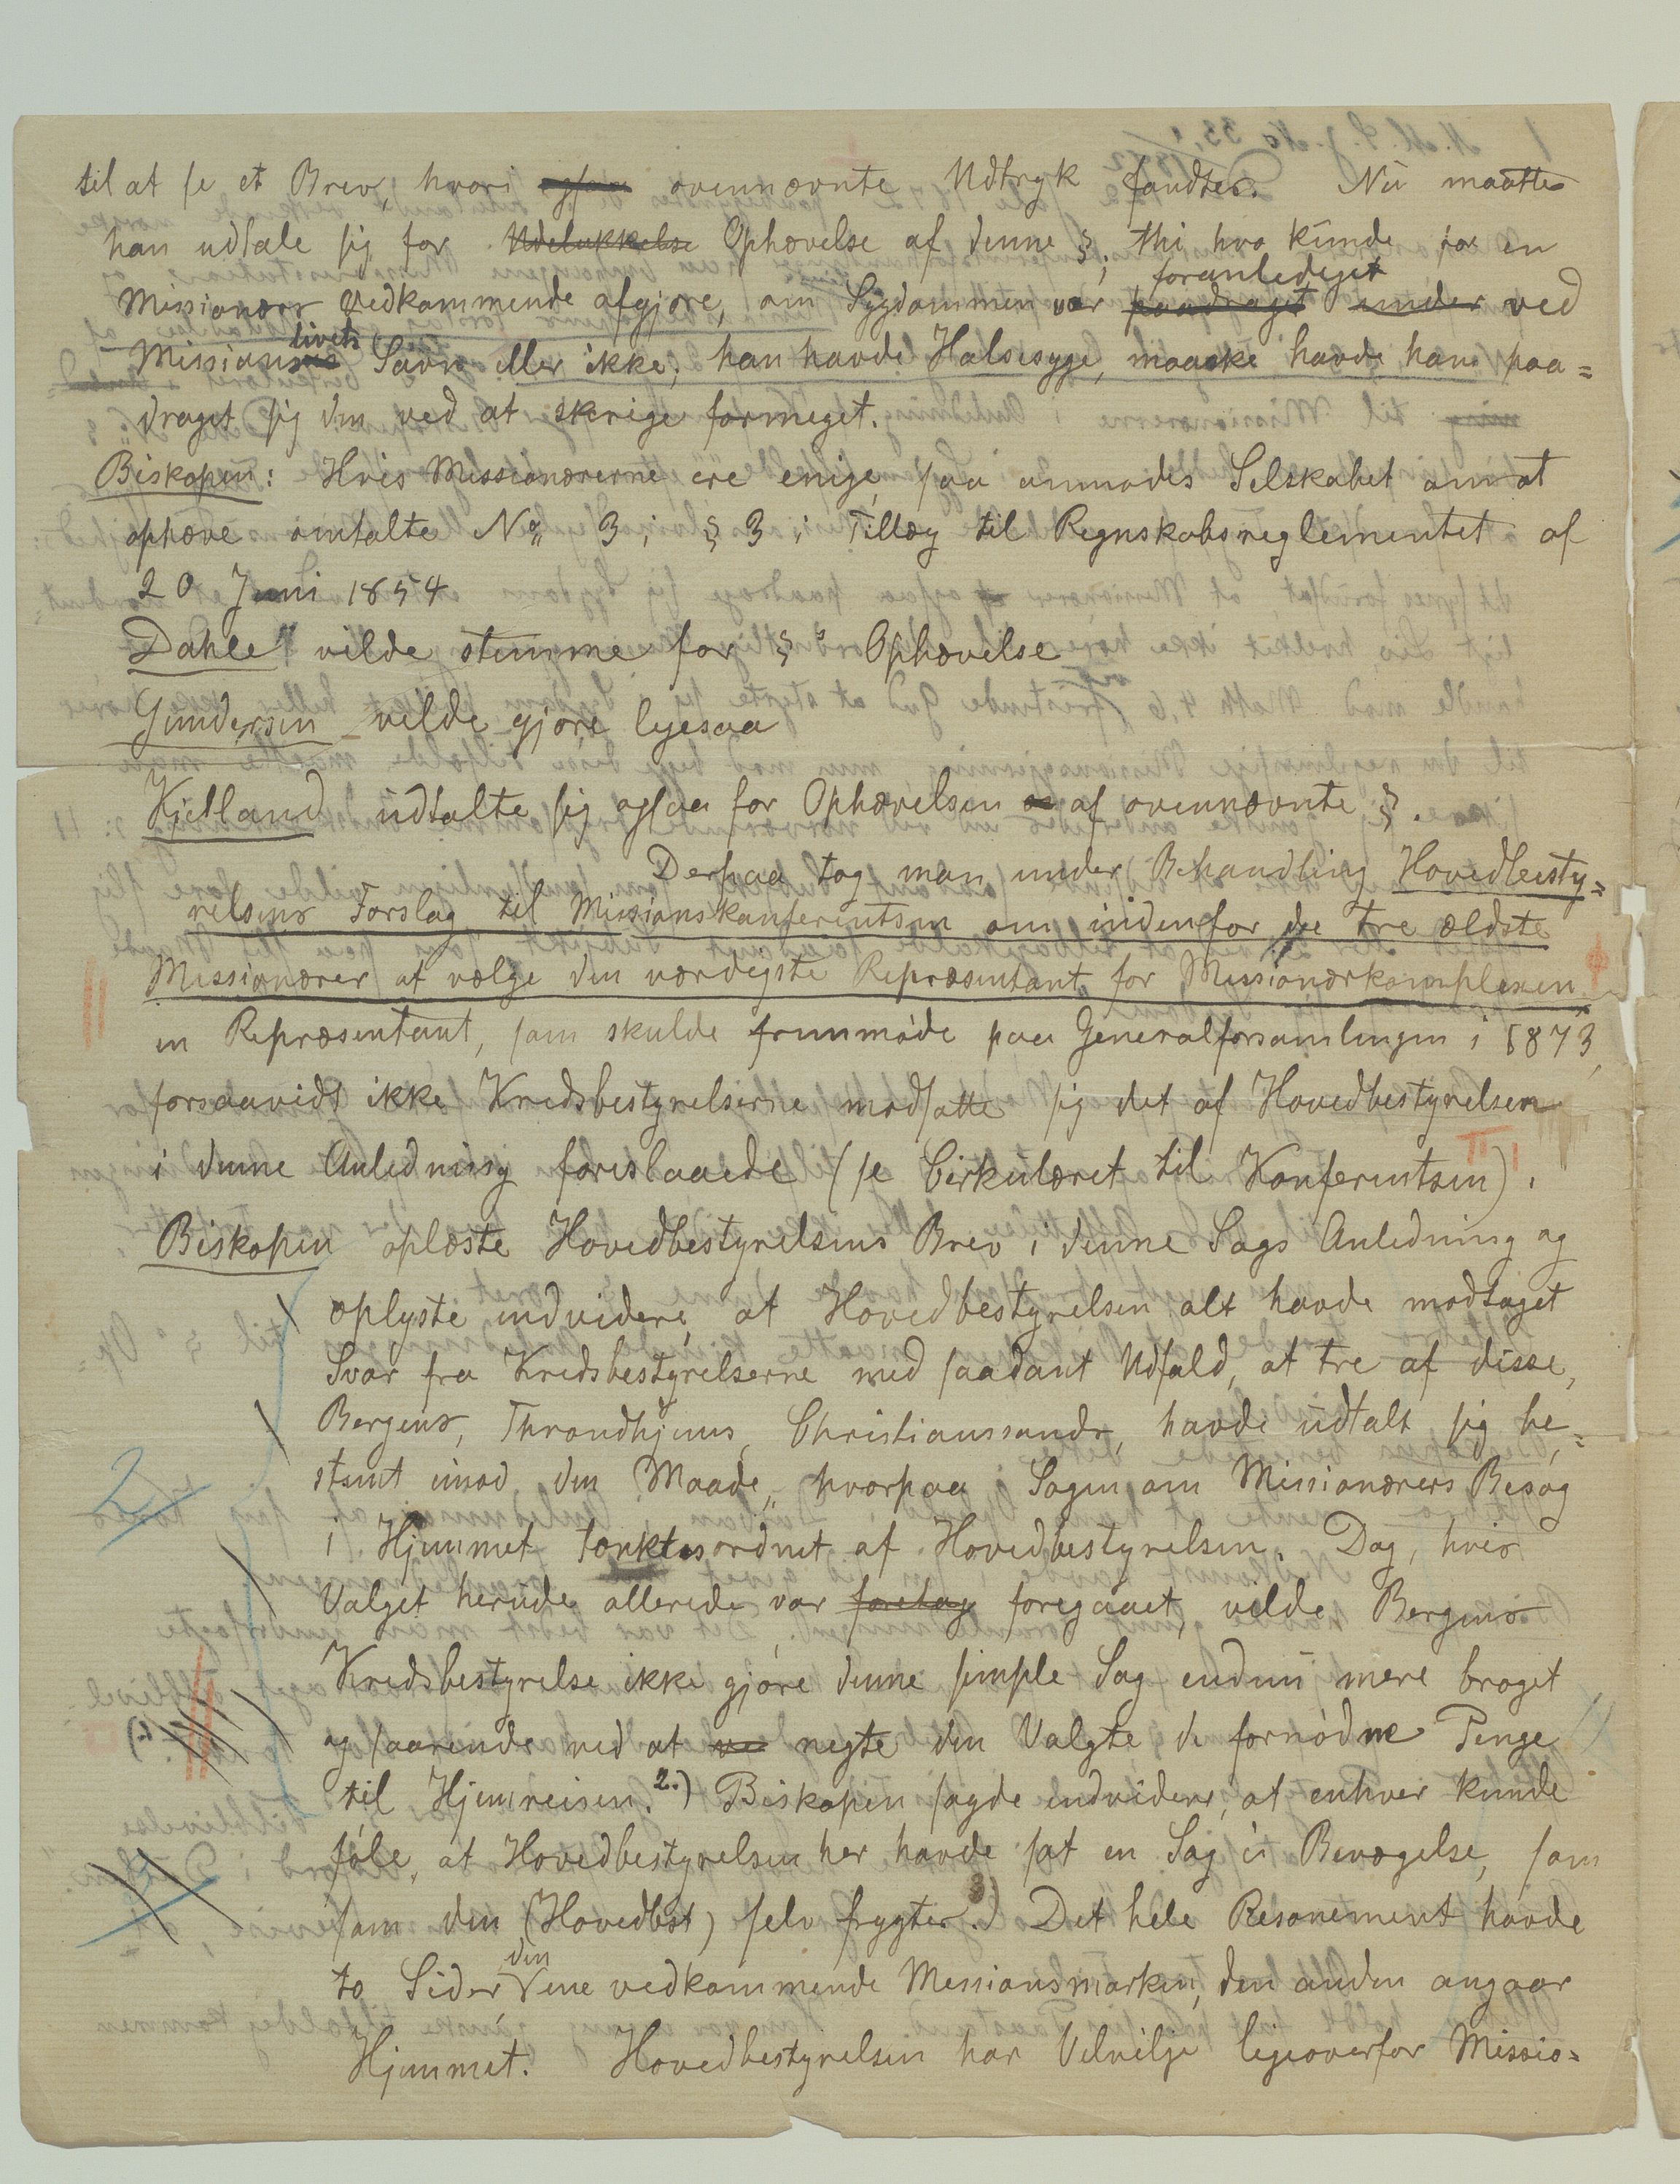 til at se et Brev, hvori ogsaa ovennævnte Udtryk fandtes. Nu maatte
han udtale sig for Udelukkelse Ophævelse af denne §, thi hvo kunde for en
foranlediget
Missionærs Vedkommende afgjøre, om Sygdommen var paadraget under ved
livets
Missions Savn eller ikke; han havde Halsesyge, maaske havde han paa=
draget sig den ved at skrige formeget.
Biskopen: Hvis Missionærerne ere enige, saa anmodes Selskabet om at
ophæve omtalte No 3 i § 3 i Tillæg til Regnskabsreglementet af
20 Juni 1854
Dahle vilde stemme for §s Ophævelse
Gundersen vilde gjøre ligesaa
Kielland udtalte sig ogsaa for Ophævelsen af ovennævnte §.
Derpaa tog man under Behandling Hovedbesty=
relsens Forslag til Missionskonferentsen om indenfor de tre ældste
Missionærer at vælge den værdigste Repræsentant for Missionærkomplexen
en Repræsentant, som skulde fremmøde paa Generalforsamlingen i 1873,
forsaavidt ikke Kredsbestyrelserne modsatte sig det af Hovedbestyrelsen
i denne Anledning foreslaaede (se Cirkulæret til Konferentsen).
Biskopen oplæste Hovedbestyrelsens Brev i denne Sags Anledning og
oplyste endvidere, at Hovedbestyrelsen alt havde modtaget
Svar fra Kredsbestyrelserne med saadant Udfald, at tre af disse,
Bergens, Throndhjems, Christianssands, havde udtalt sig be=
stemt imod den Maade, hvorpaa Sagen om Missionærers Besøg
i Hjemmet tænktes ordnet af Hovedbestyrelsen. Dog, hvis
Valget herude allerede var foretag foregaaet, vilde Bergens
Kredsbestyrelse ikke gjøre denne simple Sag endnu mere broget
og saarende ved at negte den Valgte de fornødne Penge
til Hjemreisen. 2.) Biskopen sagde endvidere, at enhver kunde
føle, at Hovedbestyrelsen her havde sat en Sag i Bevægelse, som
som den (Hovedbst) selv frygter. 3) Det hele Resonement havde
den
to Sider Vene vedkommende Missionsmarken, den anden angaar
Hjemmet. Hovedbestyrelsen har Velvilje ligeoverfor Missio=